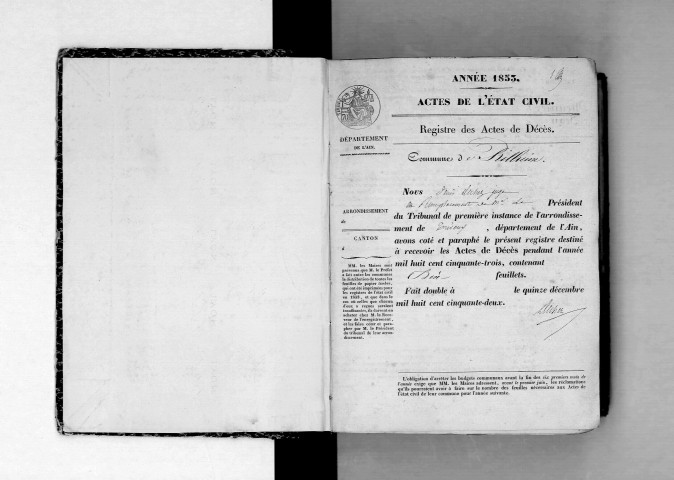 ANNÉE 1853.
ACTES DE L'ÉTAT CIVIL.
Registre des Actes de Décès.
DÉPARTEMENT
DE L'AIN.
Commune d
ARRONDISSEMENT
de
CANTON
Nous
Président
du Tribunal de première instance de l'arrondisse-
ment de Trévoux, département de l'Ain,
avons coté et paraphé le présent registre destiné
à recevoir les Actes de Décès pendant l'année
mil huit cent cinquante-trois, contenant
feuillets.
Fait double à le quinze décembre
mil huit cent cinquante-deux.
MM. les Maires sont
prévenus que M. le Préfet
a fait entre les communes
la distribution de toutes les
feuilles de papier timbré,
qui ont été imprimées pour
les registres de l'état civil
en 1853, et que dans le
cas où celles que chacun
d'eux a reçues seraient
insuffisantes, ils devront en
acheter chez M. le Rece-
veur de l'enregistrement,
et les faire coter et para-
pher par M. le Président
du tribunal de leur arron-
dissement.
L'obligation d'arrêter les budgets communaux avant la fin des six premiers mois de
l'année exige que MM. les Maires adressent, avant le premier juin, les réclamations
qu'ils pourraient avoir à faire sur le nombre des feuilles nécessaires aux Actes de
l'état civil de leur commune pour l'année suivante.